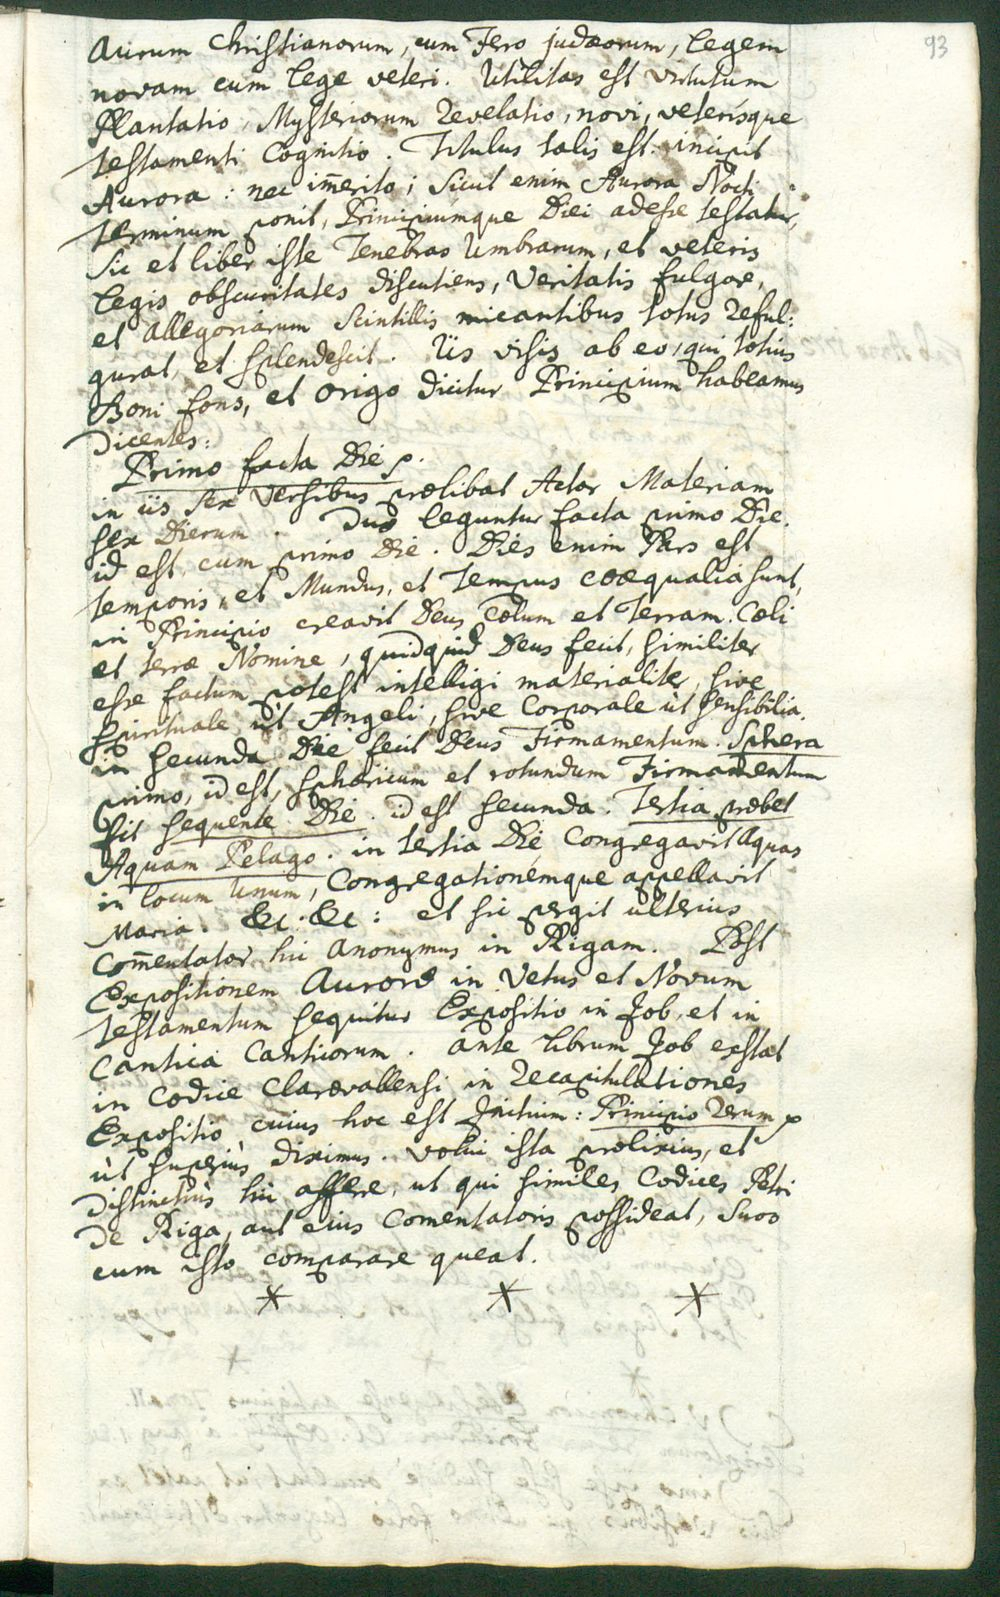 93
Aurum Christianorum, cum Fero judæorum, legem
novam cum lege veteri. Utilitas est virtutum
Plantatio, Mysteriorum Revelatio, novi, veterisque
testamenti Cognitio. Titulus talis est: incipit
Aurora: nec im̄erito; sicut enim Aurora Nocti
terminum ponit, Principiúmque Diei adesse testatur,
sic et liber iste Tenebras Umbrarum, et veteris
legis obscuritates discutiens, Veritatis fulgore,
et allegoriarum scintillis micantibus totus reful:
gurat, et splendescit. Iis visis ab eo, qui totius
Boni fons, et origo dicitur Principium habeamus
Dicentes:
Primo facta Die p.
in iis sex versibus prælibat Actor Materiam
sex Dierum. Duo leguntur facta primo Die.
id est, cum primo Die. Dies enim Pars est
temporis, et Mundus, et tempus coæqualia sunt,
in Principio creavit Deus Cœlum et Terram. Cœli
et terræ Nomine, quidquid Deus fecit, similiter
esse factum potest intelligi materialiter, sive
spirituale ut Angeli, sive Corporale ùt sensibilia.
in secunda Die fecit Deus Firmamentum. Sphera
primo, id est, sphæricum et rotundum Firmamentum
fit sequente Die. id est secunda. Tertia præbet
Aquam Pelago. in tertia Die Congregavit Aquas
in locum Unum, Congregationémque appellavit
Maria. &c. &c: et sic pergit ulterius
Com̄entator hic Anonymus in Rigam. Post
Expositionem Auroræ in Vetus et Novum
testamentum sequitur Expositio in Job, et in
Cantica Canticorum. ante librum Job exstat
in Codice Clarævallensi in recapitulationes
Expositio cuius hoc est Initium: Principio rerum p
ùt superiùs diximus. volui ista prolixius, et
distinctiùs hic afferre, ut qui similes Codices Petri
de Riga, aut eius Comentatoris possideat, suos
cum isto comparare queat.
* * *